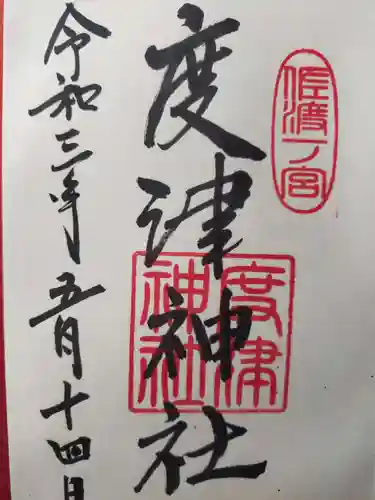 佐渡一ノ宮
度津神社
度津
神社
令和三年五月十四日